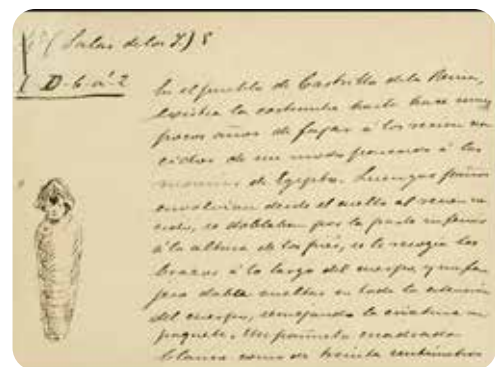 (Salas de los I.) 8
I D-b-a'-2
En el pueblo de Castrillo de la Reina,
existía la costumbre hasta hace muy
pocos años de fajar á los recien na
cidos de un modo parecido á las
momias de Egipto. Luengos paños
envolvian desde el cuello al recien na
cido, se doblaban por la parte inferior
á la altura de los pies, se le recogia los
brazos á lo largo del cuerpo, y una fa
ja daba vueltas en toda la extension
del cuerpo, semejando la criatura un
paquete. Un pañuelo cuadrado
blanco como de treinta centimetros